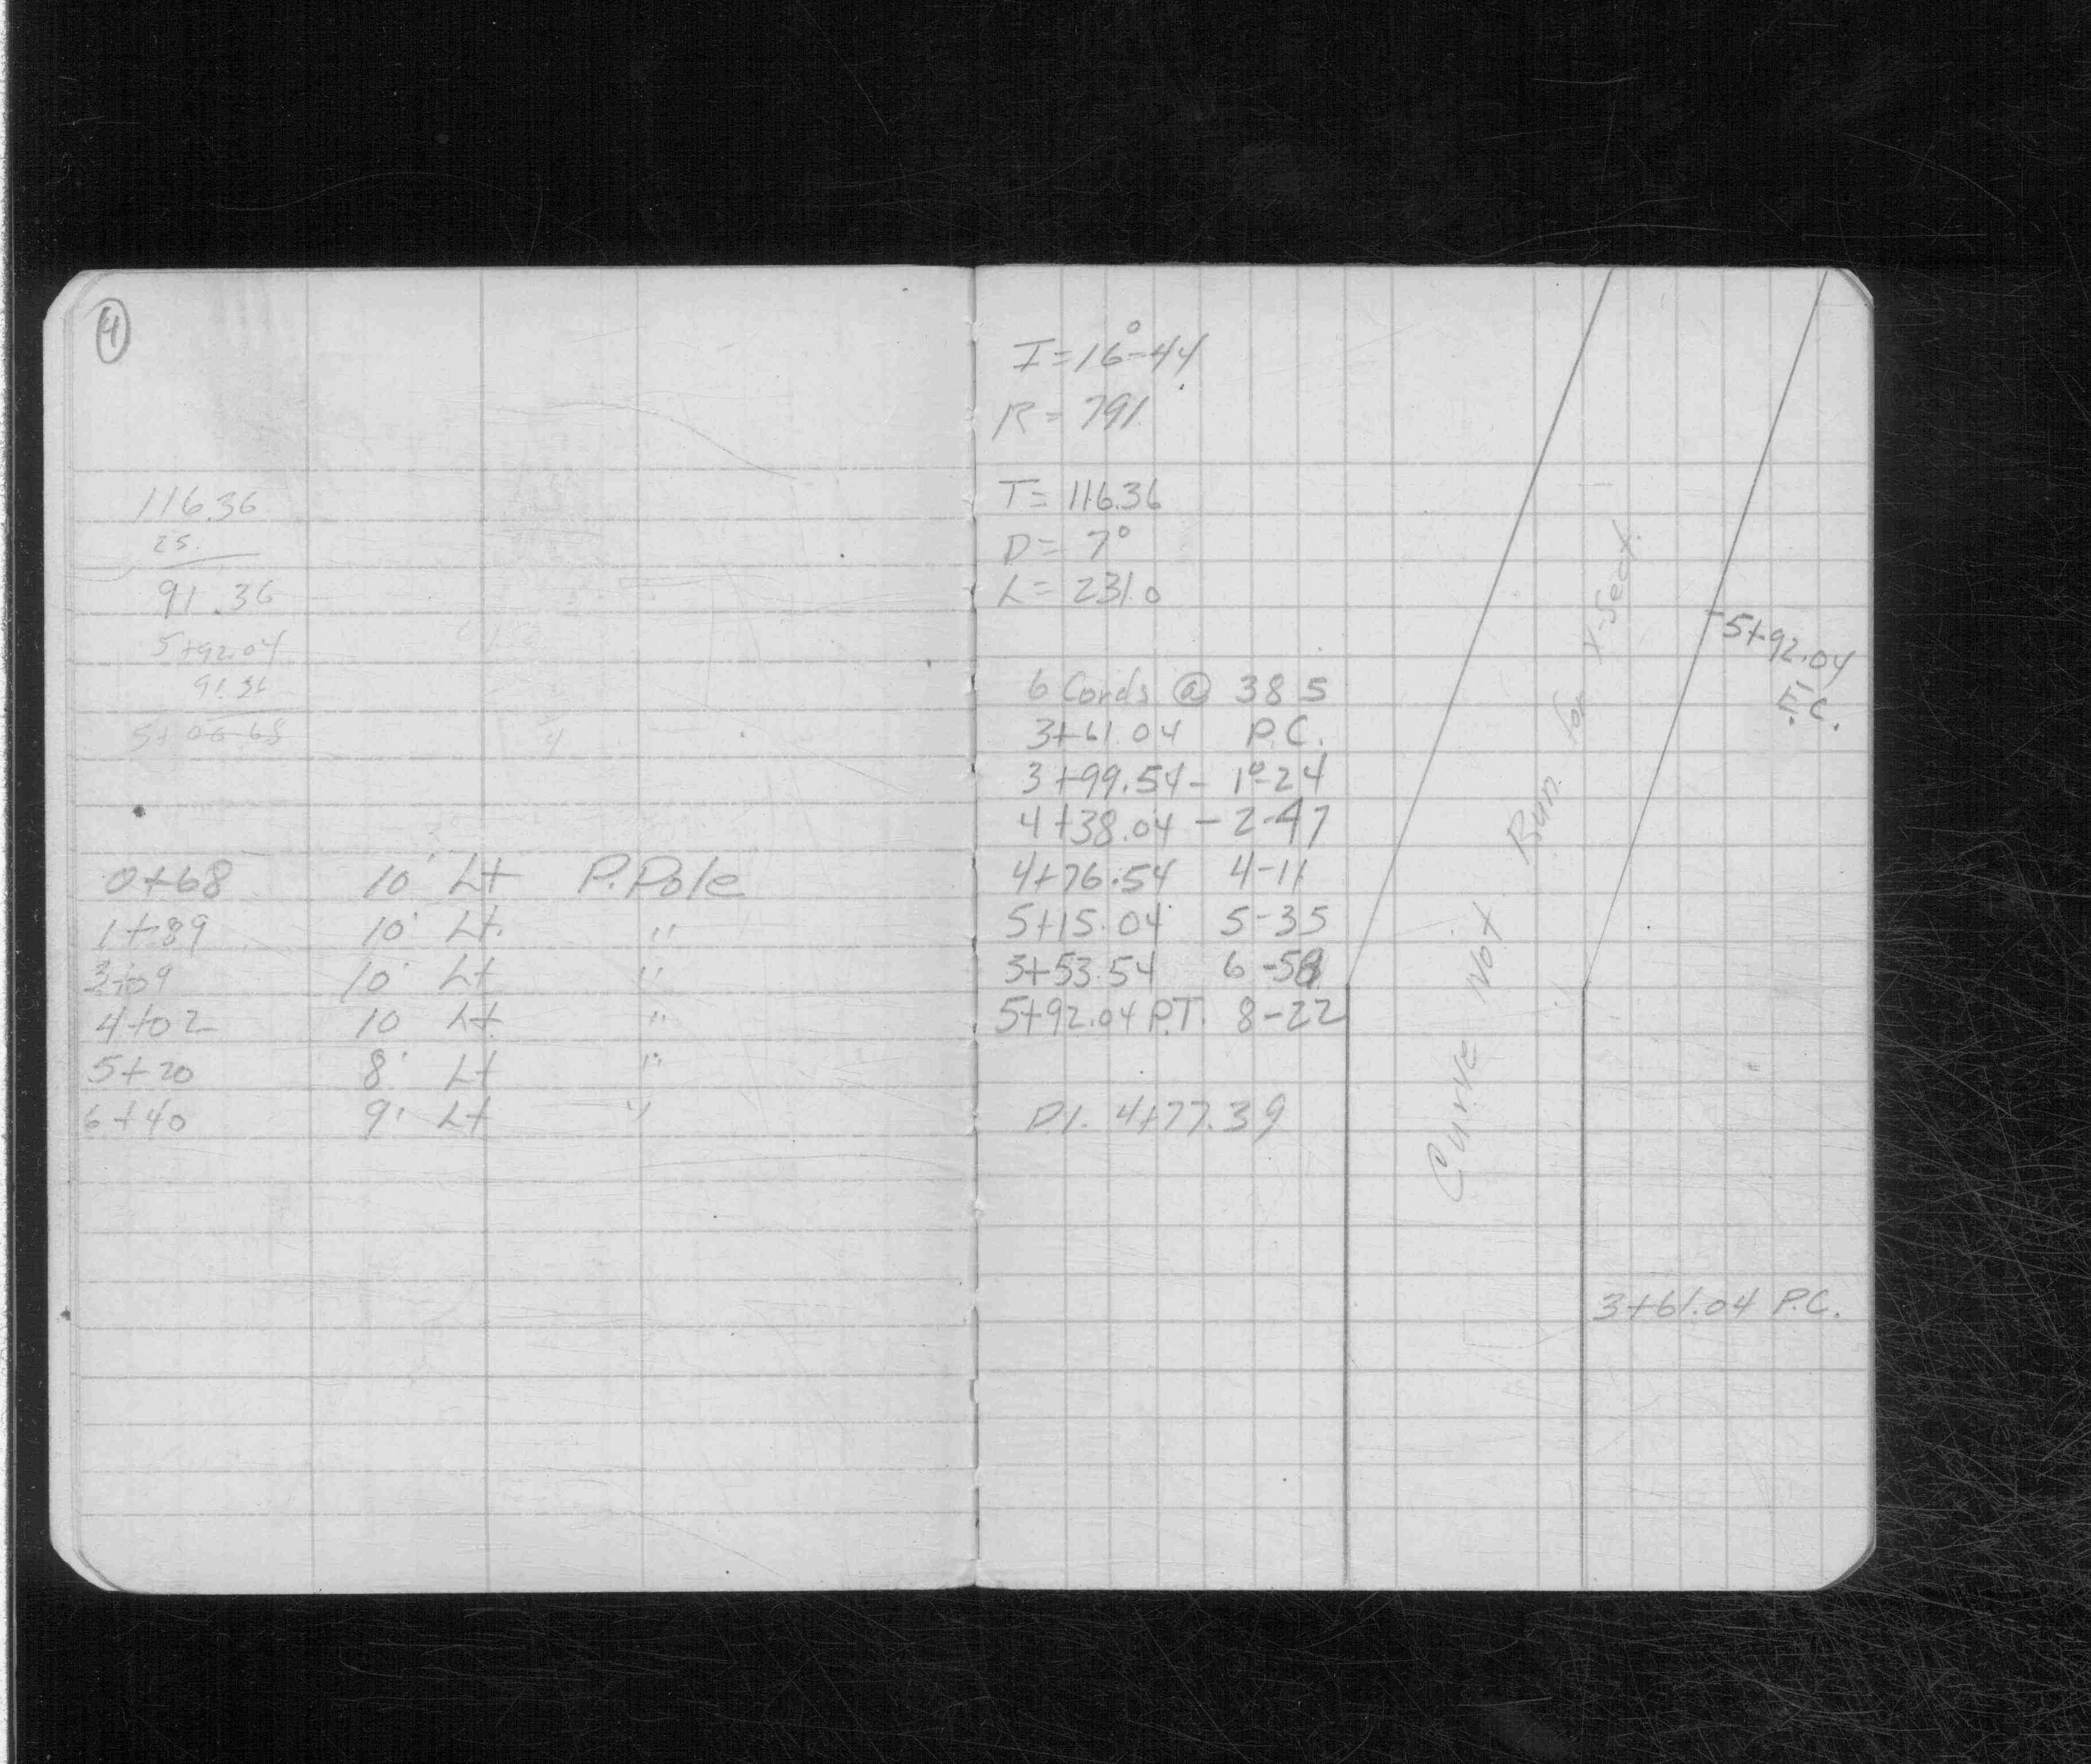 4
116.36
25.
91.36
5+92.04
91.36
5+00.68
0+68 10' Lt P.Pole
1+89 10' Lt. "
3+09 10' Lt "
4+02 10 Lt "
5+20 8' Lt "
6+40 9' Lt "
I=16°-44
R= 791.
T= 116.36
D= 7°
L= 231.0
6 Cords @ 38 5
3+61.04 P.C.
3+99.54- 1°-24
4+38.04 - 2-47
4+76.54 4-11
5+15.04 5-35
3+53.54 6-58
5+92.04 P.T. 8-22
P.I. 4+77.39
Curve Not Run for X-Sect.
5+92.04
E.C.
3+61.04 P.C.